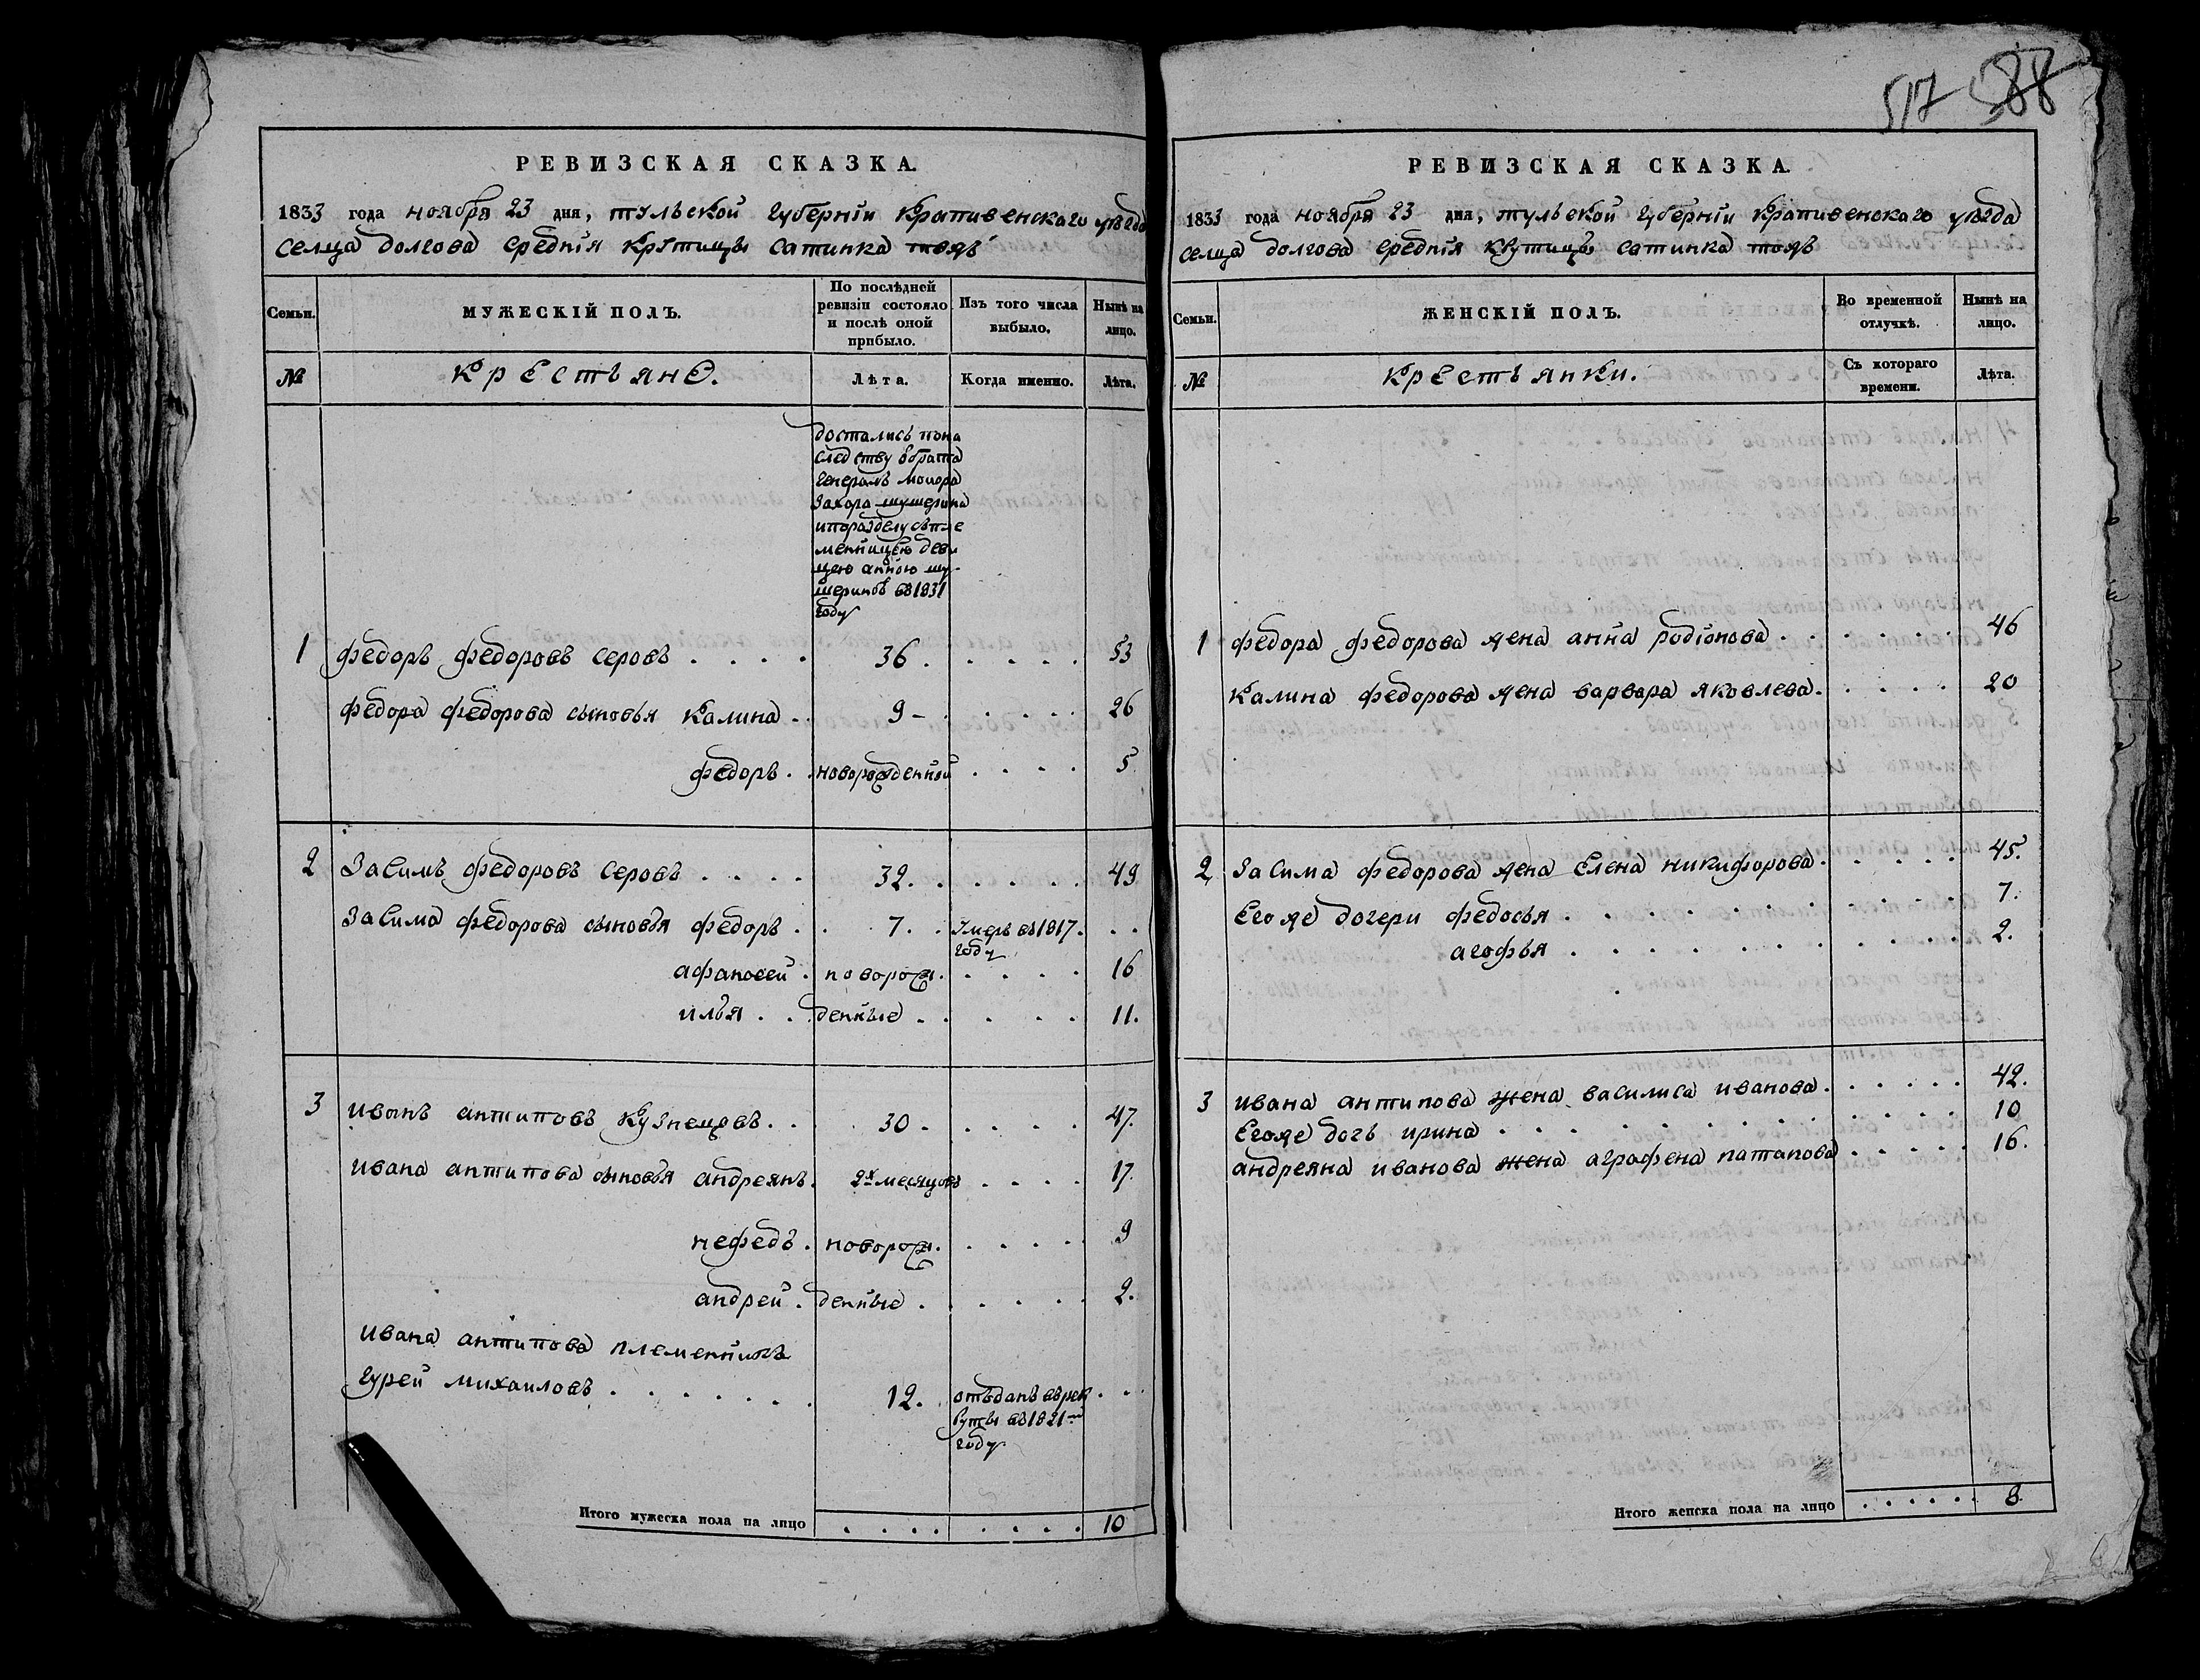 РЕВИЗСКАЯ СКАЗКА.
1833 года ноября 23 дня, тульской губернїи крапивенскаго уѣзда
селца долгова среднїя крутицы сатинка тояѣ
Семьи.
МУЖЕСКІЙ ПОЛЪ.
По послѣдней
ревизіи состояло
и послѣ оной
прибыло.
Изъ того числа
выбыло.
Нынѣ на
лицо.
№
крестьяне.
Лѣта.
Когда именно.
Лѣта.
достались пона
следству о брата
генералъ моиора
Захара шушерина
и поразделу съпле
менницею деви
цею анною шу-
шериной въ 1831
году
1 федоръ федоровъ серовъ . . . . 36 . . . . . 53
федора федорова сыновья калина . . 9 - . . . . . 26
федоръ . . новорожденной . . . . 5
2 Засимъ федоровъ серовъ . . . . 32 . . . . . . 49
Засима федорова сыновья федоръ . . 7 . . Умеръ въ 1817 . . .
году
афаносеи . новорож . . . . . 16
илья . . денные . . . . . 11.
3 иванъ антиповъ кузнецовъ . . . 30 - . . . . 47.
ивана антипова сыновья андреянъ . 2х месяцовъ . . . . 17.
нефедъ . новорож . . . . . 9
андреи . денные . . . . . . 2.
ивана антипова племенникъ
гурей михаиловъ . . . . . . 12 . . отъданъ въ рек . . .
руты въ 1821м
году
Итого мужеска пола на лицо . . . . . . . . 10
517 588
РЕВИЗСКАЯ СКАЗКА.
1833 года ноября 23 дня, тульской губернїи крапивенскаго уѣзда
селца долгова среднїя крутицы сатинка тояѣ
Семьи.
ЖЕНСКІЙ ПОЛЪ.
Во временной
отлучкѣ.
Нынѣ на
лицо.
№
крестьянки.
Съ котораго
времени.
Лѣта.
1 федора федорова жена анна родїонова . . . . . . . 46
калина федорова жена варвара яковлева . . . . . 20
2 Засима федорова жена Елена никифорова . . . . . . 45.
Егоже дочери федосья . . . . . . . . . . . 7.
агофья . . . . . . . . . . . 2.
3 ивана антипова жена василиса иванова . . . . . . 42.
Егоже дочь ирина . . . . . . . . . . . . 10
андреяна иванова жена аграфена патапова . . . . . 16.
Итого женска пола на лицо . . . . . . 8.